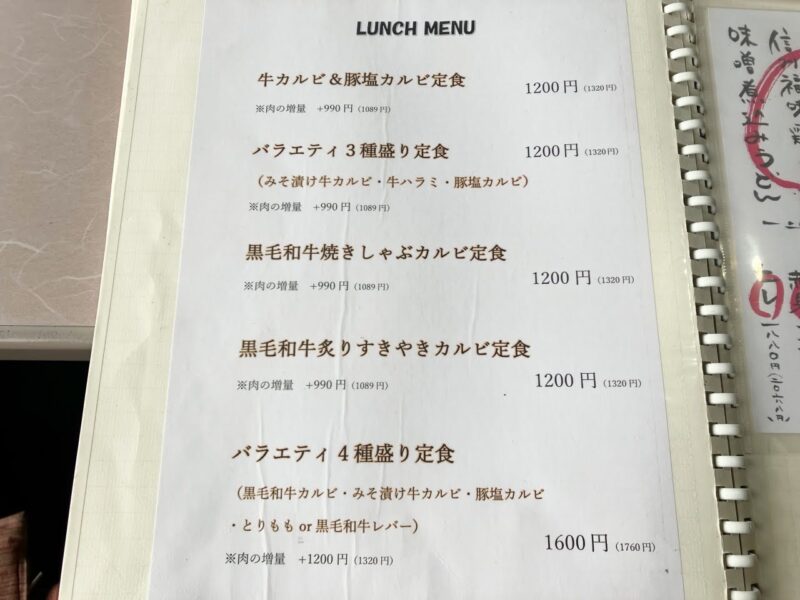 LUNCH MENU
牛カルビ&豚塩カルビ定食 1200円(1320円)
※肉の増量 +990円(1089円)
バラエティ3種盛り定食 1200円(1320)
(みそ漬け牛カルビ・牛ハラミ・豚塩カルビ)
※肉の増量 +990円(1089)
黒毛和牛焼きしゃぶカルビ定食
※肉の増量 +990円(1089) 1200円(1320)
黒毛和牛炙りすきやきカルビ定食
※肉の増量 +990円(1089) 1200円(1320)
バラエティ4種盛り定食
(黒毛和牛カルビ・みそ漬け牛カルビ・豚塩カルビ
・とりもも or 黒毛和牛レバー)
※肉の増量 +1200円(1320) 1600円(1760円)
味噌煮込みうどん